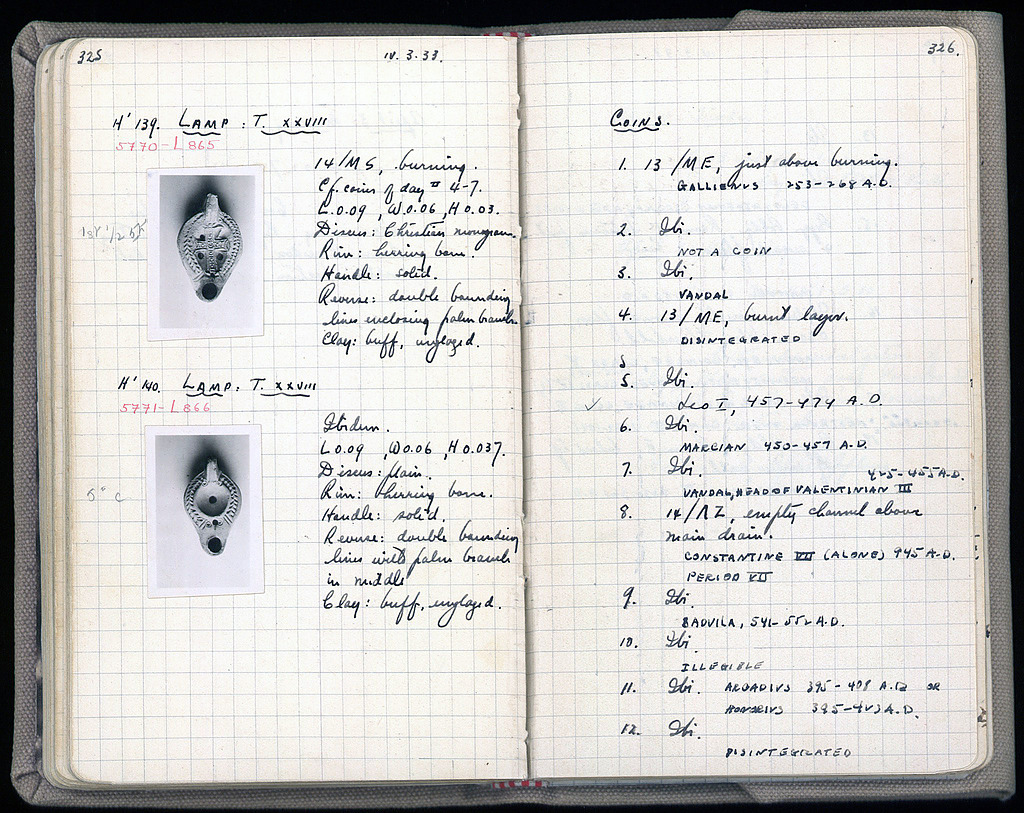 325
IV. 3. 33.
H' 139. LAMP: T. XXVIII
5770-L865
14/MS, burning.
Cf. coins of day II 4-7.
L 0.09, W 0.06, H 0.03.
Discus: Christian monogram.
Rim: herring bone.
Handle: solid.
Reverse: double bounding
lines enclosing palm branch.
Clay: buff, unglazed.
1st 1/2 5th
H' 140. LAMP: T. XXVIII
5771-L866
Ibidem.
L 0.09, W 0.06, H 0.037.
Discus: plain.
Rim: herring bone.
Handle: solid.
Reverse: double bounding
lines with palm branch
in middle
Clay: buff, unglazed.
5" C
326.
COINS.
1. 13/ME, just above burning.
GALLIENUS 253-268 A.D.
2. Ibi.
NOT A COIN
3. Ibi.
VANDAL
4. 13/ME, burnt layer.
DISINTEGRATED
5
5. Ibi.
✓ Leo I, 457-474 A.D.
6. Ibi.
MARCIAN 450-457 A.D.
7. Ibi. 425-455 A.D.
VANDAL, HEAD OF VALENTINIAN III
8. 14/ΛZ, empty channel above
main drain.
CONSTANTINE VII (ALONE) 945 A.D.
PERIOD VII
9. Ibi.
BADVILA, 541-552 A.D.
10. Ibi.
ILLEGIBLE
11. Ibi. ARCADIUS 395-408 A.D. OR
HONORIUS 395-423 A.D.
12. Ibi.
DISINTEGRATED